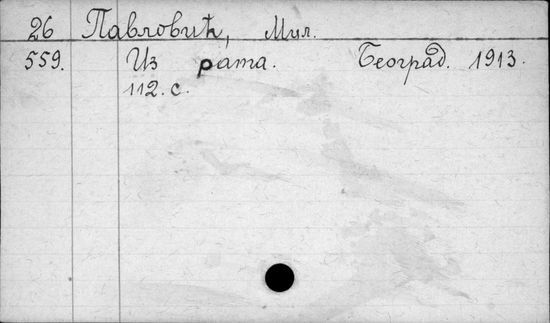 26 Павловић, Мил.
559. Из рата. Београд. 1913.
112. с.